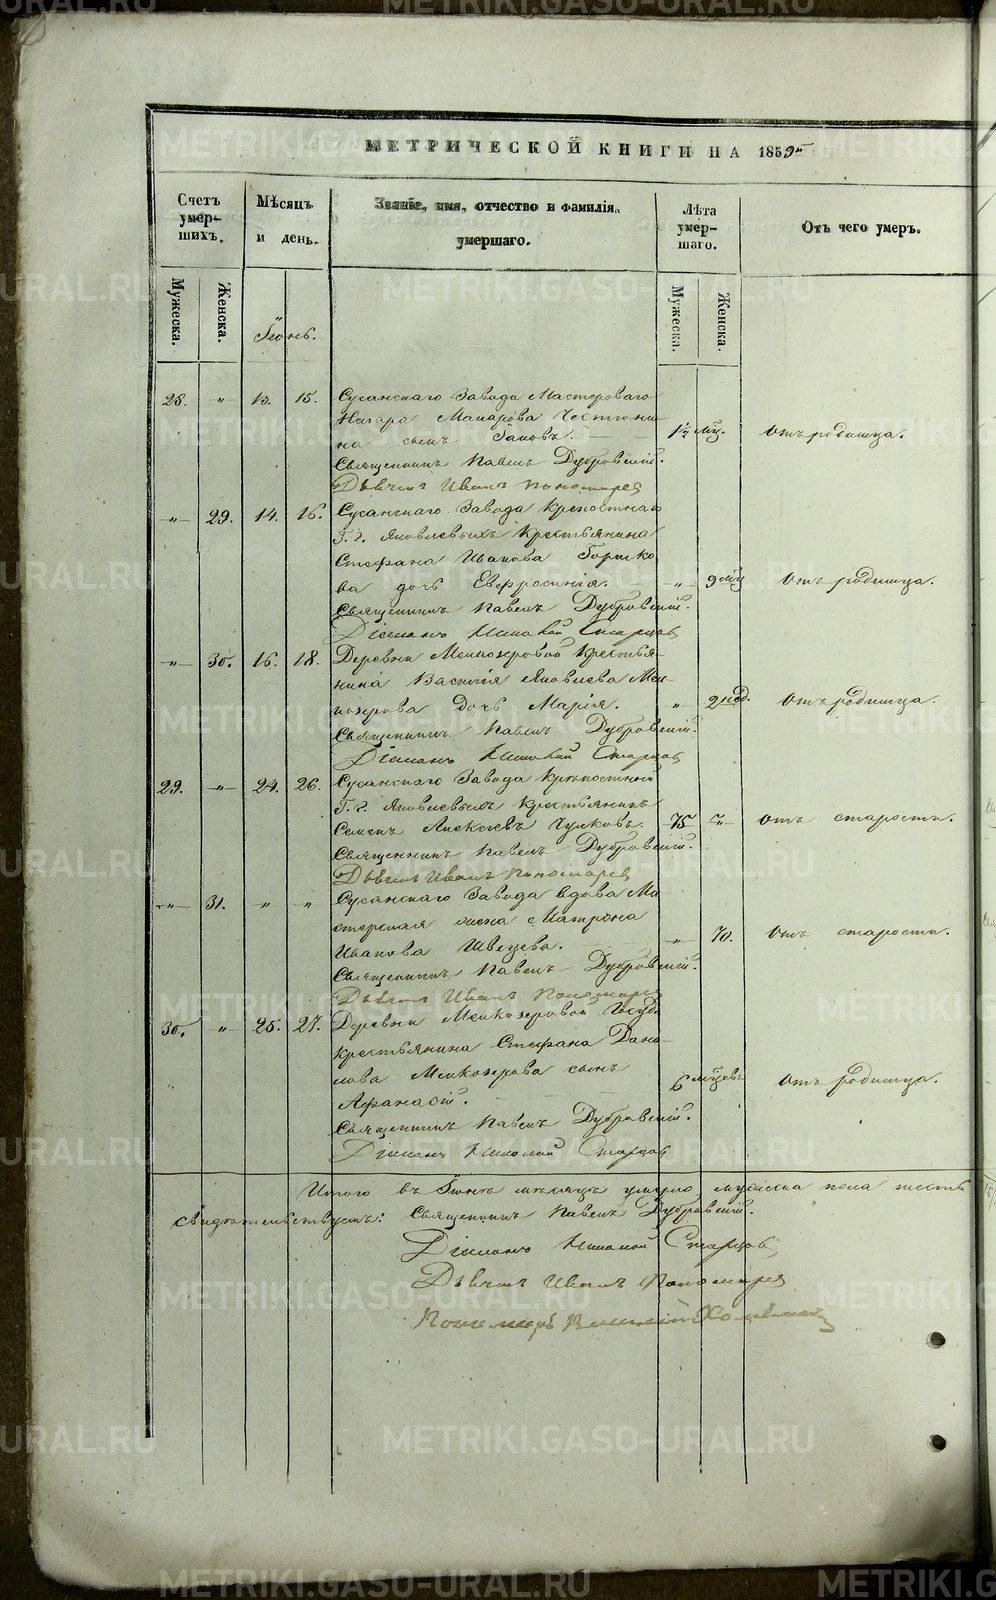 МЕТРИЧЕСКОЙ КНИГИ НА 1859
Счетъ умершихъ.
Мѣсяцъ и день.
Званіе, имя, отчество и фамилія умершаго.
Лѣта умершаго.
Отъ чего умеръ.
Мужеска.
Женска.
Мужеска.
Женска.
Іюнь.
28. „ 13. 15. Сусанскаго Завода Мастероваго
Назара Макарова
на сынъ Іаковъ. 1½ мц. Отъ родимца.
Священникъ Павелъ Дубровскій.
Дьячекъ Иванъ Пономарев
„ 29. 14. 16. Сусанскаго Завода Крепостнаго
Г. г. Яковлевыхъ Крестьянина
Стефана Иванова Горшко
ва дочь Евфросинія. „ 9 мц Отъ родимца.
Священникъ Павелъ Дубровскій.
Діаконъ Николай Старцов
„ 30. 16. 18. Деревни Мелкозеровой Крестья-
нина Василія Яковлева Мел-
козерова Дочь Марія. „ 2 нед. Отъ родимца.
Священникъ Павелъ Дубровскій.
Діаконъ Николай Старцов
29. „ 24. 26. Сусанскаго Завода Крѣпостный
Г. г. Яковлевыхъ Крестьянинъ
Семенъ Алексѣевъ Чулковъ. 75 „ Отъ старости.
Священникъ Павелъ Дубровскій.
Дьячекъ Иванъ Пономарев
„ 31. „ „ Сусанскаго Завода вдова Ма
стерская жена Матрона
Иванова Швецева. „ 70. Отъ старости.
Священникъ Павелъ Дубровскій.
Дьячекъ Иванъ Пономарев
30. „ 25. 27. Деревни Мелкозеровой Госуд.
Крестьянина Стефана Дани-
лова Мелкозерова сынъ
Афанасій. 6 мцевъ Отъ родимца.
Священникъ Павелъ Дубровскій.
Діаконъ Николай Старцов
Итого въ Іюнѣ мѣсяцѣ умерло мужеска пола шесть
Свидѣтельствуютъ: Священникъ Павелъ Дубровскій.
Діаконъ Николай Старцов
Дьячекъ Иванъ Пономарев
Пономарь
METRIKI.GASO-URAL.RU